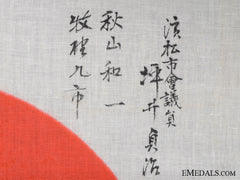 濱松市會議員
坪井貞治
秋山和一
牧野凡市
EMEDALS.COM